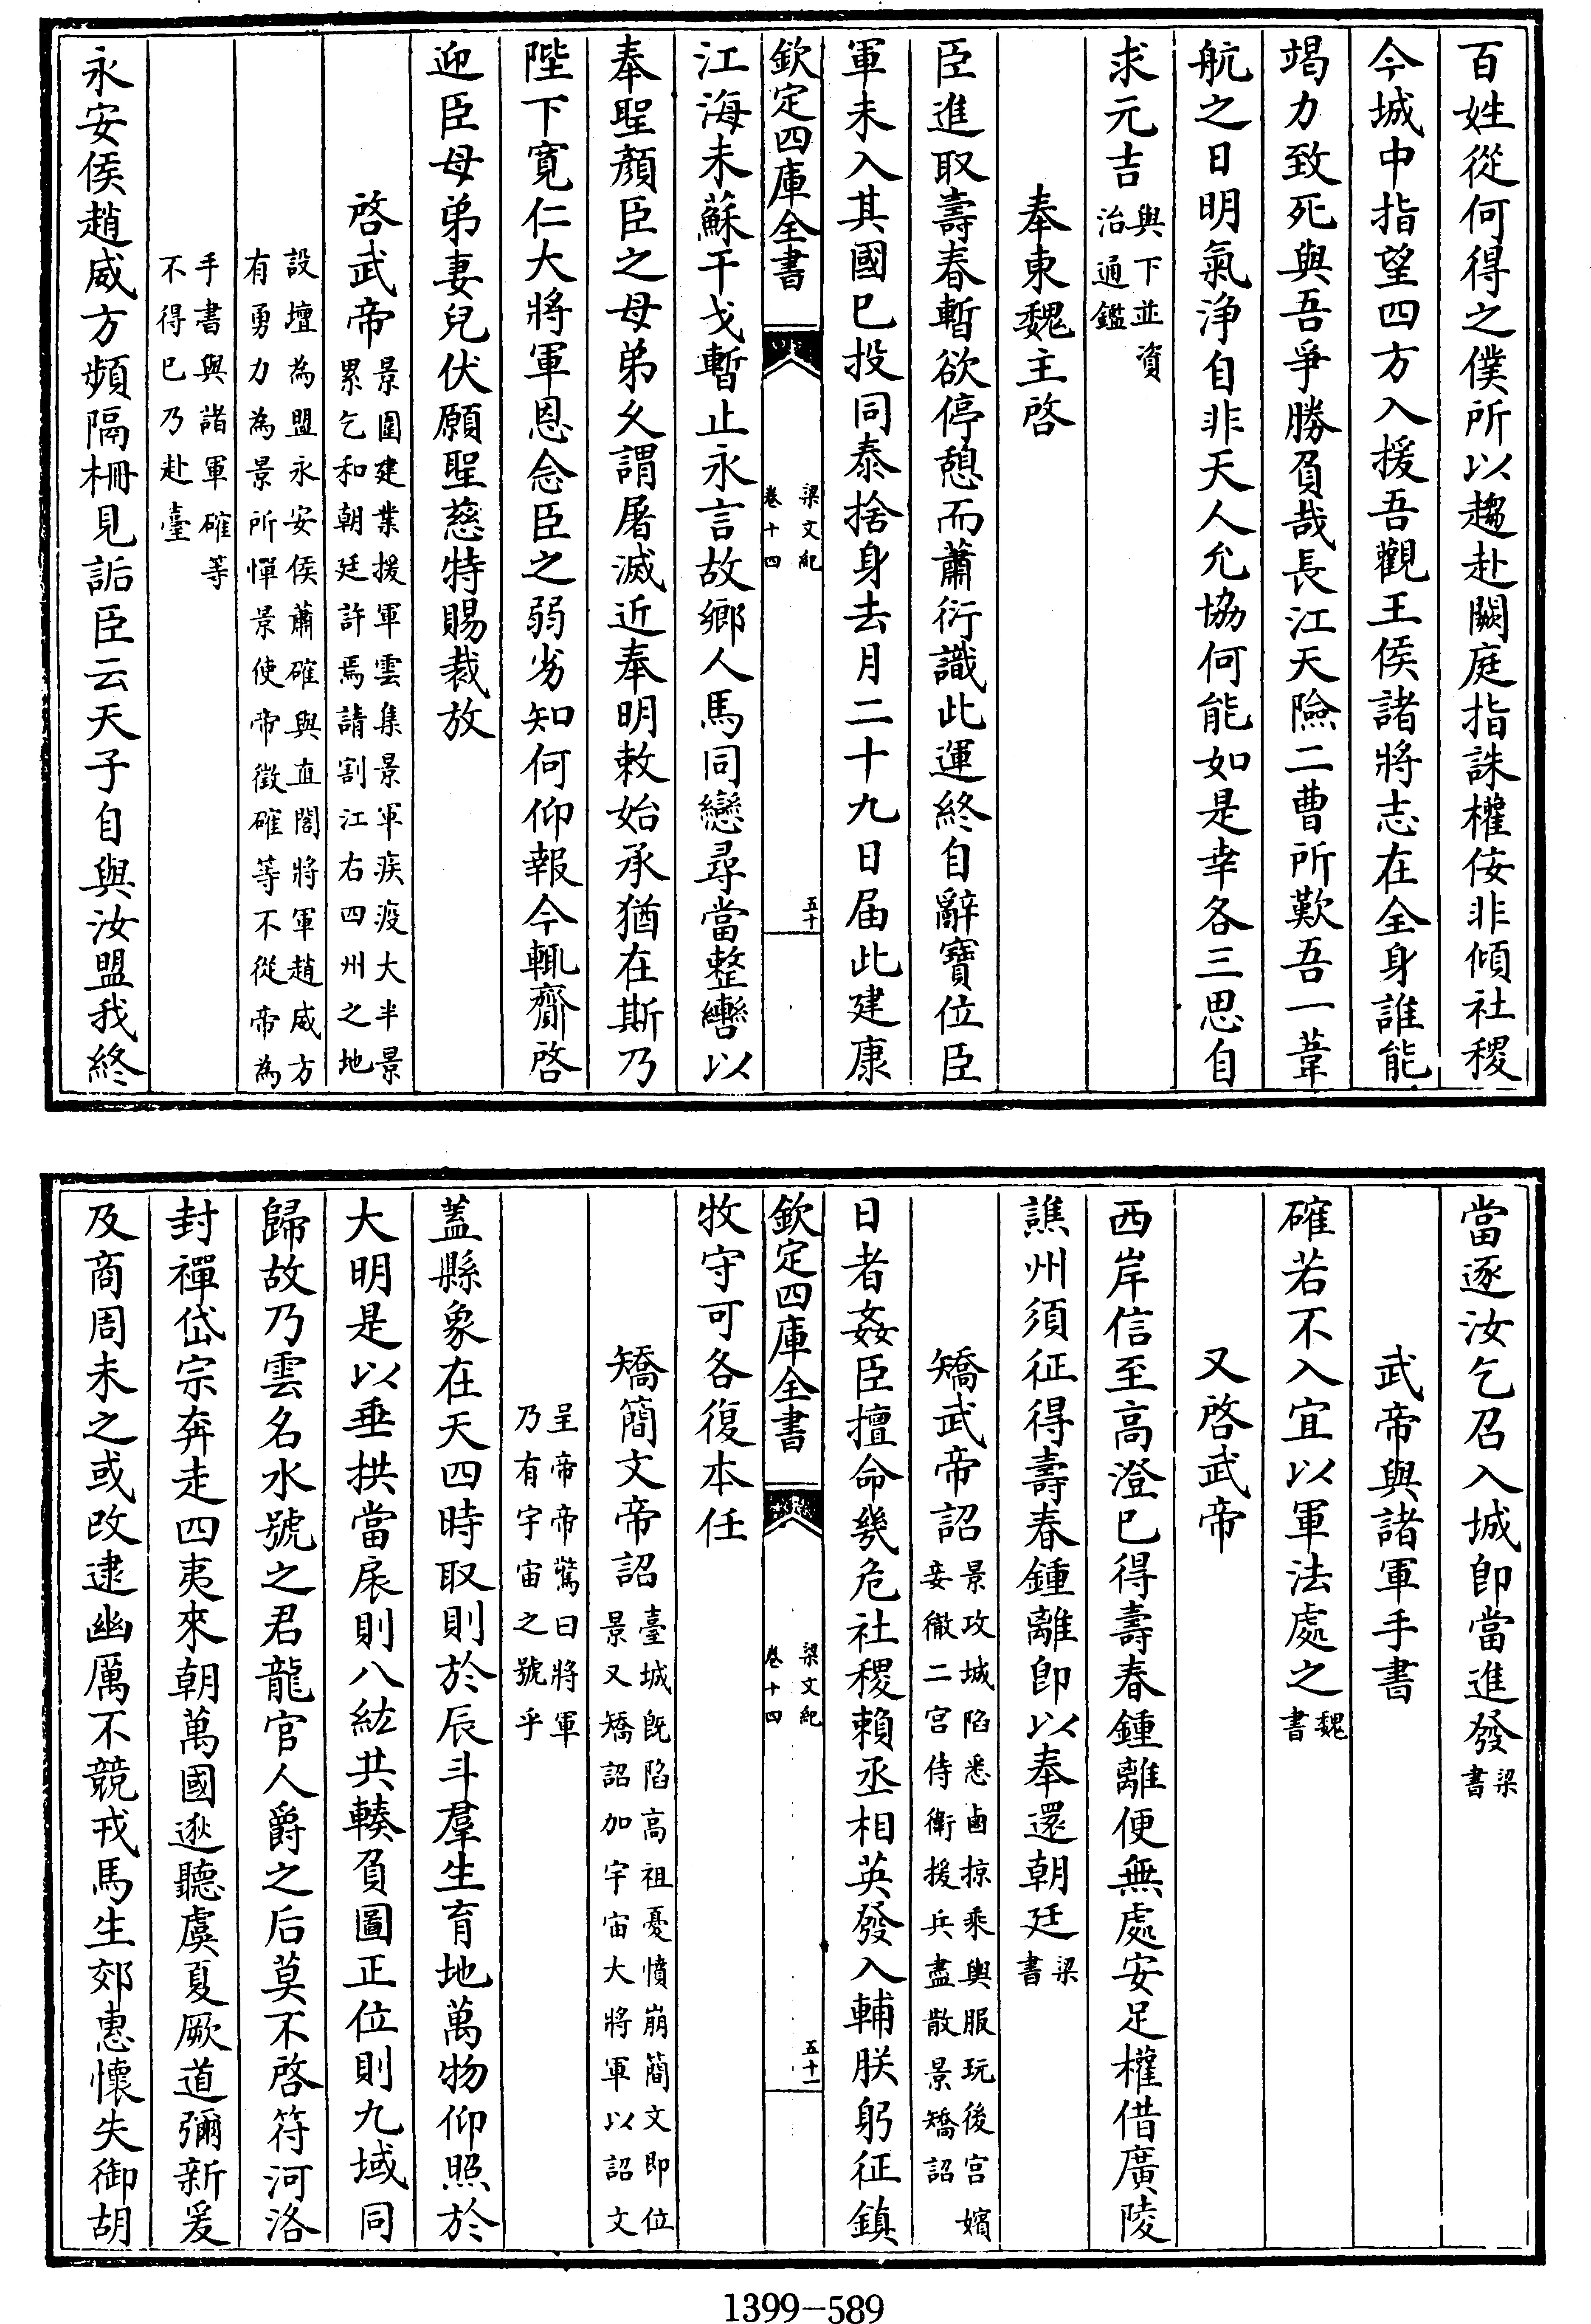 百姓從何得之僕所以趨赴闕庭指誅權佞非傾社稷
今城中指望四方入援吾觀王侯諸將志在全身誰能
竭力致死與吾爭勝負哉長江天險二曹所歎吾一葦
航之日明氣淨自非天人允協何能如是幸各三思自
求元吉與下並資
治通鑑
奉東魏主啓
臣進取壽春暫欲停憩而蕭衍識此運終自辭寶位臣
軍未入其國已投同泰捨身去月二十九日届此建康
欽定四庫全書
梁文紀
卷十四
五十
江海未蘇干戈暫止永言故鄉人馬同戀尋當整轡以
奉聖顏臣之母弟久謂屠滅近奉明敕始承猶在斯乃
陛下寬仁大將軍恩念臣之弱劣知何仰報今輒齎啓
迎臣母弟妻兒伏願聖慈特賜裁放
啓武帝景圍建業援軍雲集景軍疾疫大半景
累乞和朝廷許焉請割江右四州之地
設壇為盟永安侯蕭確與直閤將軍趙威方
有勇力為景所憚景使帝徵確等不從帝為
手書與諸軍確等
不得已乃赴臺
永安侯趙威方頻隔柵見詬臣云天子自與汝盟我終
當逐汝乞召入城即當進發梁
書
武帝與諸軍手書
確若不入宜以軍法處之魏
書
又啓武帝
西岸信至高澄已得壽春鍾離便無處安足權借廣陵
譙州須征得壽春鍾離即以奉還朝廷梁
書
矯武帝詔景攻城陷悉鹵掠乘輿服玩後宮嬪
妾徹二宮侍衛援兵盡散景矯詔
日者姦臣擅命幾危社稷賴丞相英發入輔朕躬征鎮
欽定四庫全書
梁文紀
卷十四
五十一
牧守可各復本任
矯簡文帝詔臺城既陷高祖憂憤崩簡文即位
景又矯詔加宇宙大將軍以詔文
呈帝帝驚曰將軍
乃有宇宙之號乎
蓋縣象在天四時取則於辰斗羣生育地萬物仰照於
大明是以垂拱當扆則八紘共轃負圖正位則九域同
歸故乃雲名水號之君龍官人爵之后莫不啓符河洛
封禪岱宗奔走四夷來朝萬國逖聽虞夏厥道彌新爰
及商周未之或改逮幽厲不競戎馬生郊惠懷失御胡
1399—589